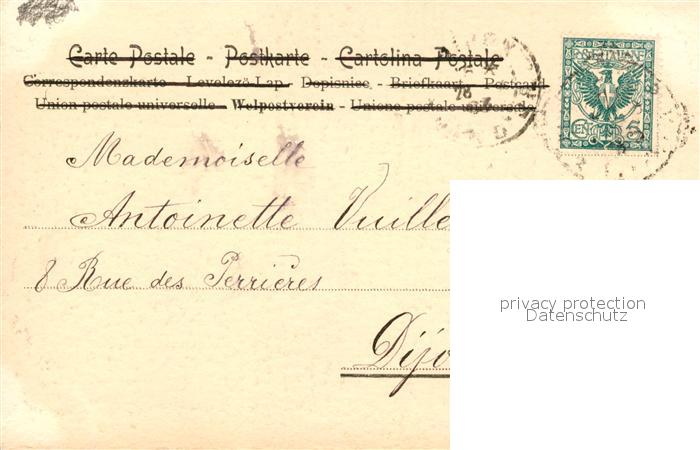 Carte Postale - Postkarte - Cartolina Postale
Correspondenzkarte - Levelezö-Lap. Dopisnice - Briefkaart - Postcard
Union postale universelle - Welpostverein - Unione postale universale
POSTE ITALIANE
5
Mademoiselle
Antoinette Vuille
8 Rue des Perrières
Dijo
privacy protection
Datenschutz